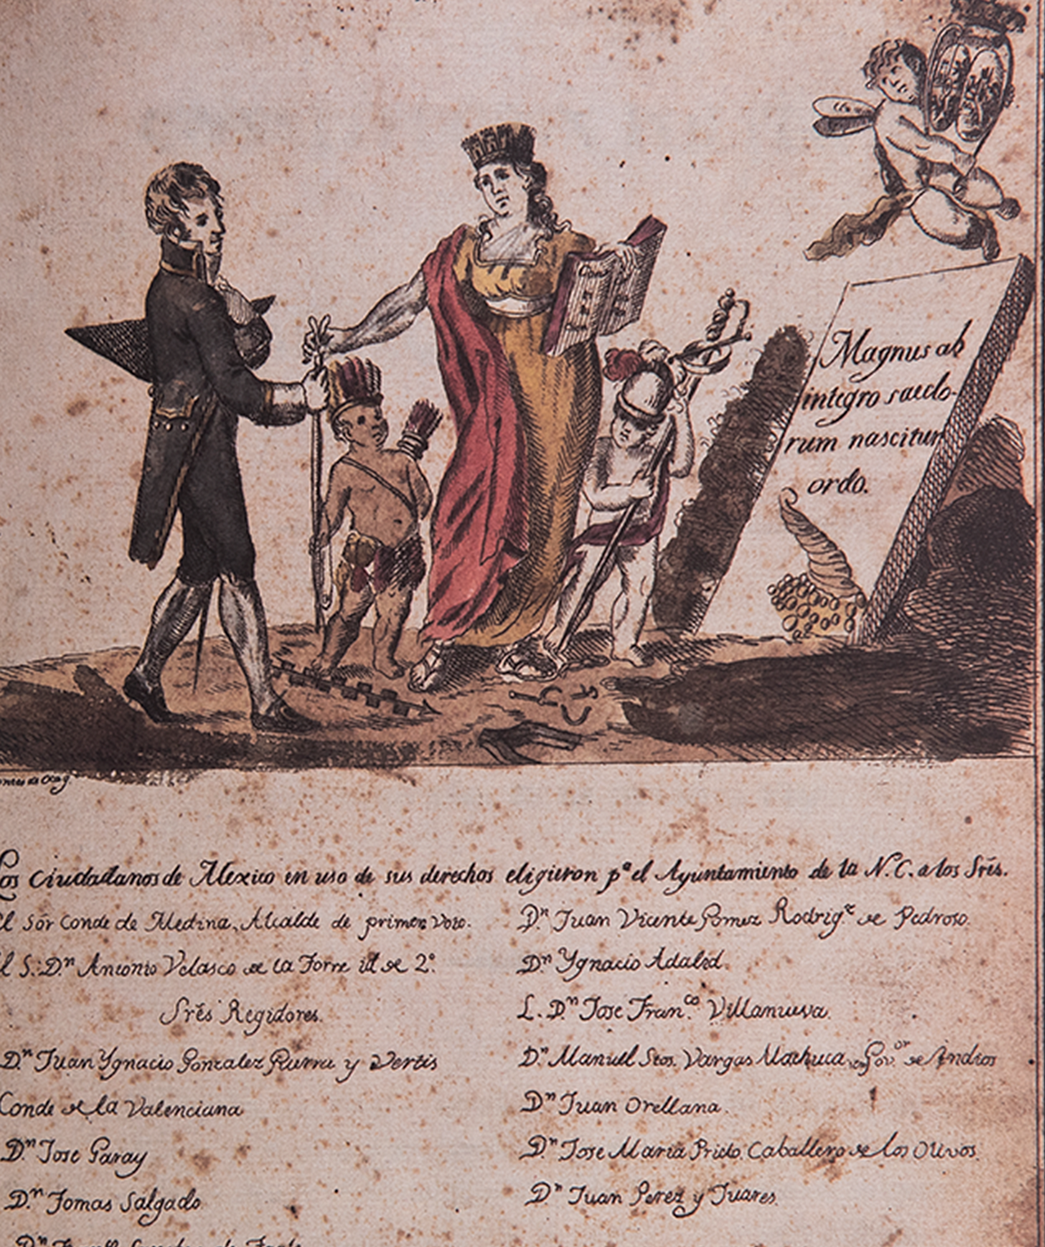 Magnus ab
integro saeclo-
rum nascitur
ordo.
Los ciudadanos de Mexico en uso de sus derechos eligieron pª el Ayuntamiento de la N. C. a los Srēs.
el Sōr Conde de Medina, Alcalde de primer Voto.
el S. Dⁿ Antonio Velasco de la Torre id de 2º.
Srēs Regidores.
Dⁿ Juan Ygnacio Gonzalez Guerra y Vertis
Conde de la Valenciana
Dⁿ Jose Garay
Dⁿ Tomas Salgado
Dⁿ Juan Vicente Gomez Rodrigᶻ de Pedroso.
Dⁿ Ygnacio Adalid.
L. Dⁿ Jose Franᶜᵒ Villanueva.
Dⁿ Manuel Stos. Vargas Machuca, Govᵒʳ de Yndios
Dⁿ Juan Orellana.
Dⁿ Jose Maria Prieto Caballero de los Olivos.
Dⁿ Juan Perez y Juares.